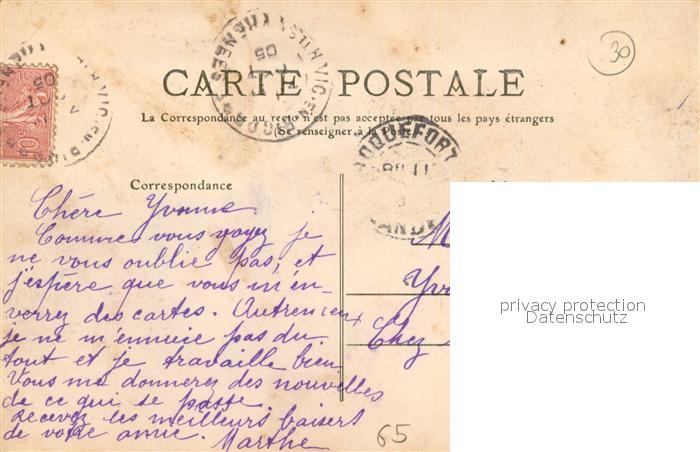 30
CARTE POSTALE
La Correspondance au recto n'est pas acceptée par tous les pays étrangers
(Se renseigner à la Poste)
VIC-EN-BIGORRE
Htes PYRÉNÉES
05
ROQUEFORT
LANDES
10
Correspondance
Chère Yvonne
Comme vous voyez je
ne vous oublie pas, et
j'espère que vous m'en-
verrez des cartes.
je ne m'ennuie pas du
tout et je travaille bien
Vous me donnerez des nouvelles
de ce qui se passe
Recevez les meilleurs baisers
de votre amie. Marthe
M
Yvo
Chez
65
privacy protection
Datenschutz